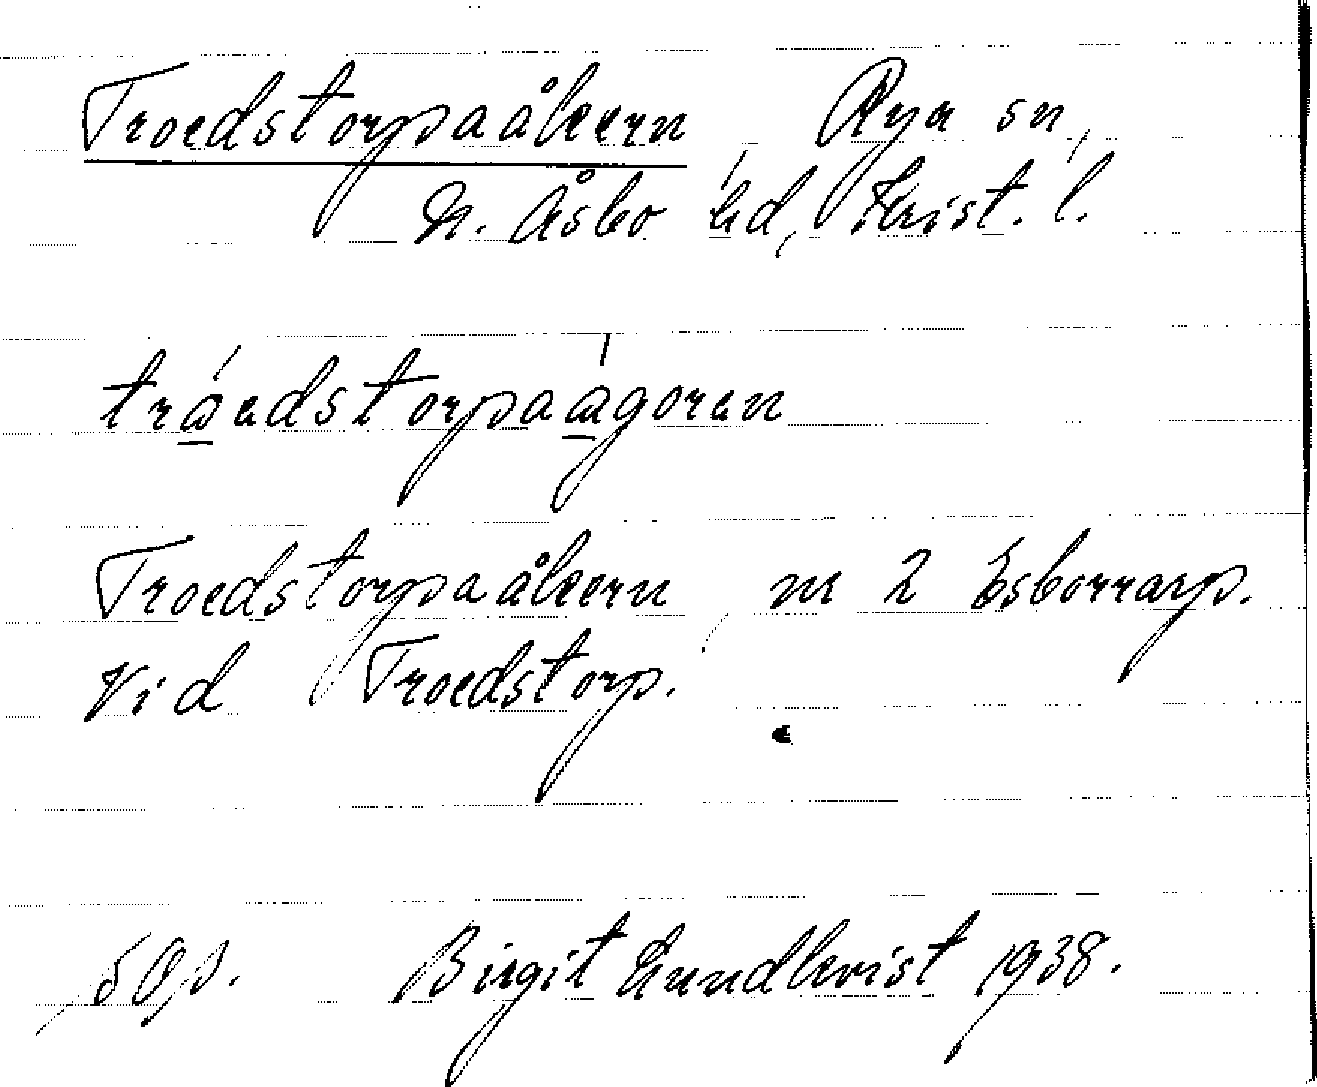 Troedstorpaåkern, Rya sn,
N. Åsbo hd, Krist. l.
tråedstorpaågoren
Troedstorpaåkern, nr 2 Esborrarp.
Vid Troedstorp.
50p. Birgit Lundkvist 1938.